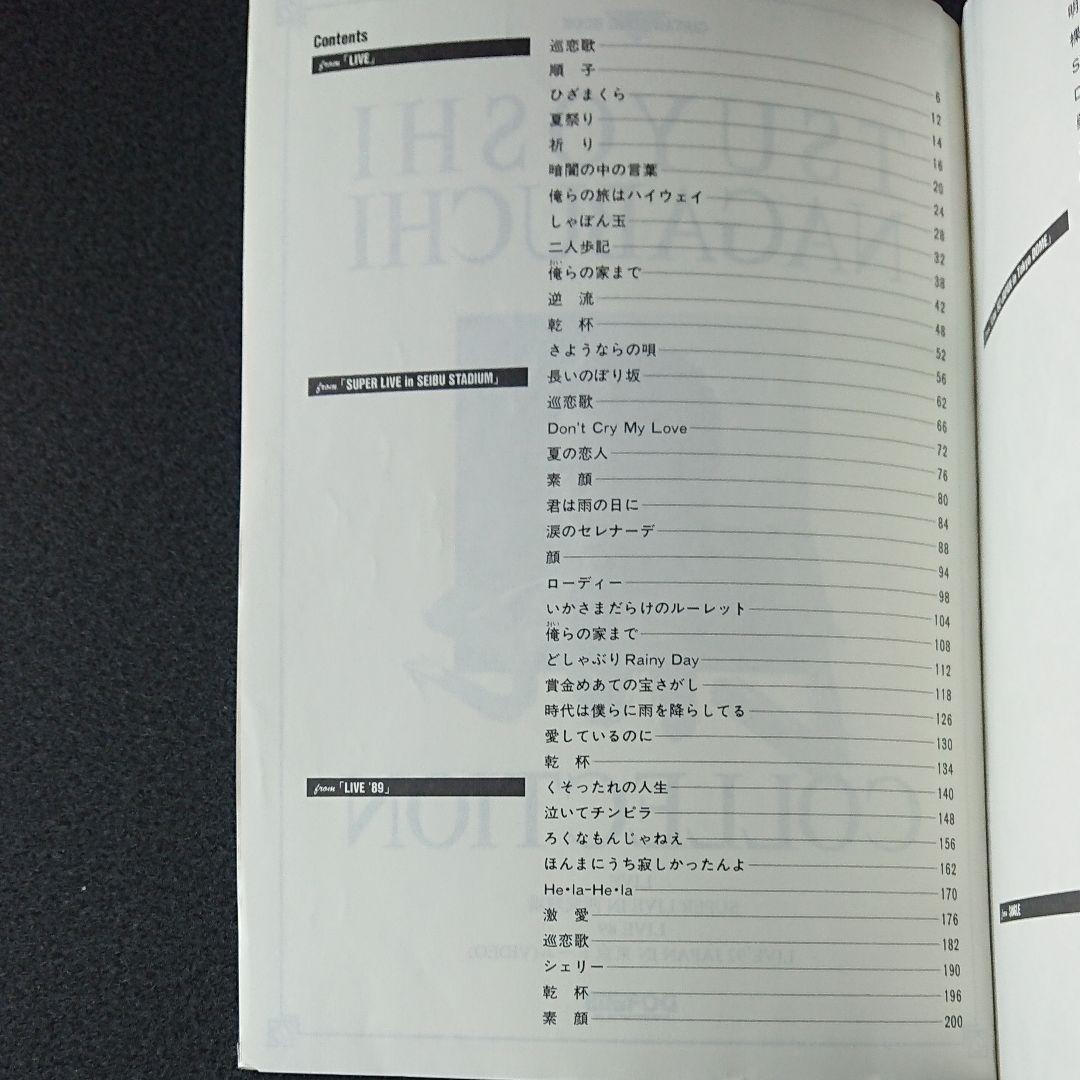 Contents
from「LIVE」
巡恋歌 6
順 子 12
ひざまくら 14
夏祭り 16
祈 り 20
暗闇の中の言葉 24
俺らの旅はハイウェイ 28
しゃぼん玉 32
二人歩記 38
俺らの家まで 42
逆 流 48
乾 杯 52
さようならの唄 56
from「SUPER LIVE in SEIBU STADIUM」
長いのぼり坂 62
巡恋歌 66
Don't Cry My Love 72
夏の恋人 76
素 顔 80
君は雨の日に 84
涙のセレナーデ 88
顔 94
ローディー 98
いかさまだらけのルーレット 104
俺らの家まで 108
どしゃぶりRainy Day 112
賞金めあての宝さがし 118
時代は僕らに雨を降らしてる 126
愛しているのに 130
乾 杯 134
from「LIVE '89」
くそったれの人生 140
泣いてチンピラ 148
ろくなもんじゃねえ 156
ほんまにうち寂しかったんよ 162
He・la-He・la 170
激 愛 176
巡恋歌 182
シェリー 190
乾 杯 196
素 顔 200
in Tokyo DOME」